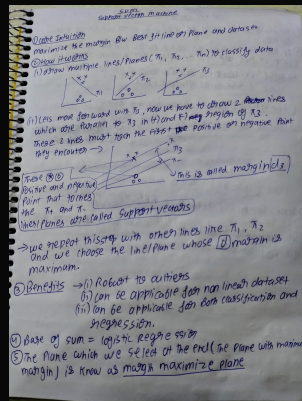 SVM
Support vector machine
① Core Intuition
maximize the margin b/w best fit line or Plane and dataset
② How it works
(i) draw multiple lines/Planes (π₁, π₂, ... πn) to classify data
π₁ π₂ π₃
(ii) Lets move forward with π₃, now we have to draw 2 lines
which are Parallel to π₃ in (+) and (-) region of π₃
These 2 lines must touch the first positive or negative point
they encounter →
These
Positive and negative
Point that touches
the π+ and π-
lines/planes are called Support vectors
This is called margin
→ we repeat this step with other lines like π₁, π₂
and we choose the line/plane whose d margin is
maximum.
③ Benefits → (i) Robust to outliers
(ii) can be applicable for non linear dataset
(iii) can be applicable for both classification and
regression.
④ Base of SVM = logistic regression
⑤ The Plane which we select at the end (The Plane with maximum
margin) is know as margin maximize plane